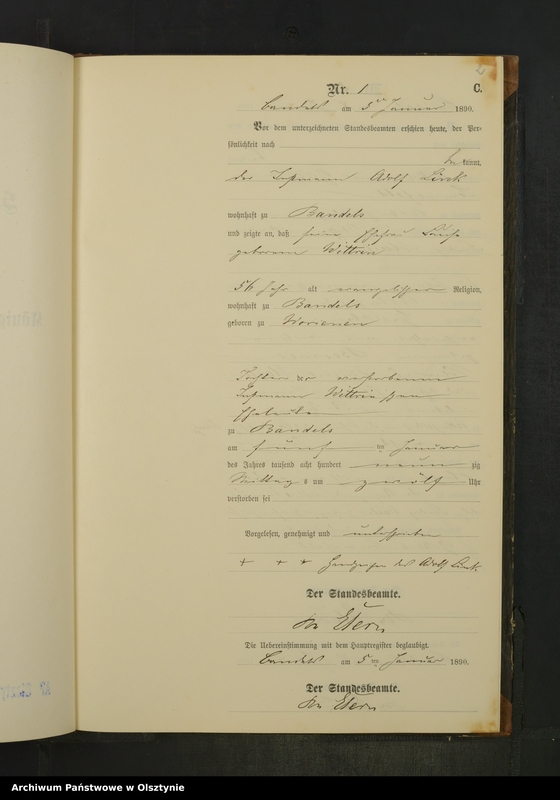 Nr. 1
C.
Bandels am 5ten Januar 1890.
Vor dem unterzeichneten Standesbeamten erschien heute, der Per-
sönlichkeit nach
be kannt,
der Instmann Adolf Link
wohnhaft zu Bandels
und zeigte an, daß seine Ehefrau
geborene Wittrin
56 Jahr alt evangelischer Religion,
wohnhaft zu Bandels
geboren zu Worienen
Tochter der verstorbenen
Instmann Wittrin'schen
Eheleute
zu Bandels
am fünf ten Januar
des Jahres tausend acht hundert neun zig
Mittag s um zwölf Uhr
verstorben sei
Vorgelesen, genehmigt und unterschrieben
+ + + Handzeichen des Adolf Link
Der Standesbeamte.
Die Uebereinstimmung mit dem Hauptregister beglaubigt.
Bandels am 5ten Januar 1890.
Der Standesbeamte.
Archiwum Państwowe w Olsztynie